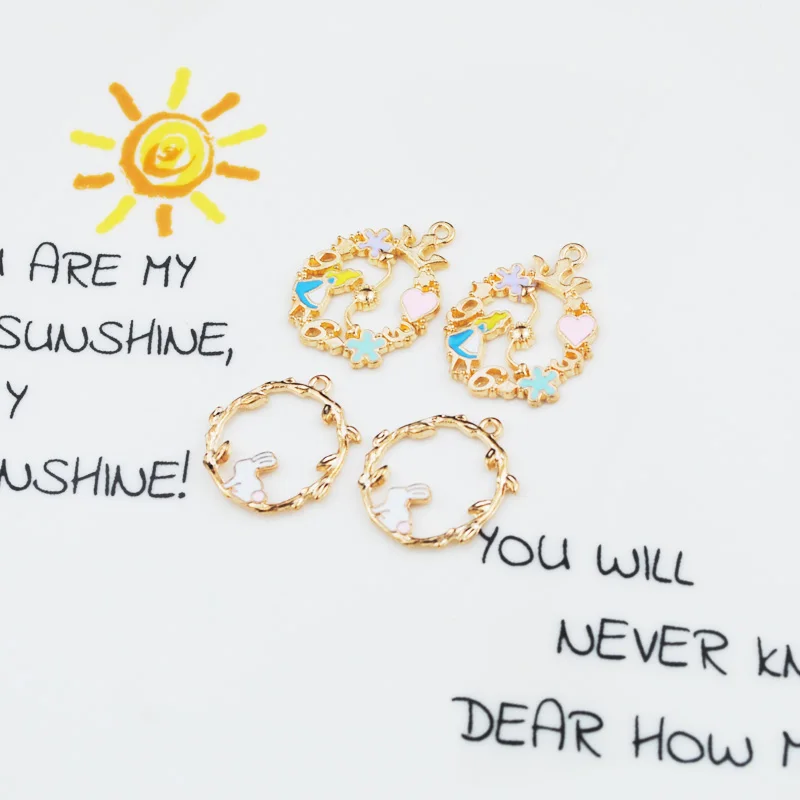 ARE MY
SUNSHINE,
YOU WILL
NEVER
DEAR HOW